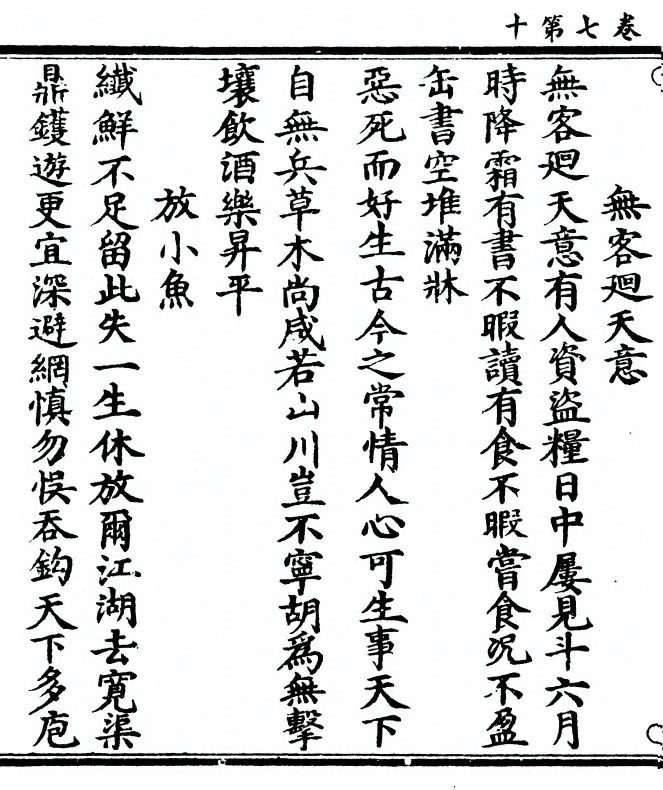 卷七第十
無客廻天意
無客廻天意有人資盜糧日中屢見斗六月
時降霜有書不暇讀有食不暇嘗食况不盈
缶書空堆滿牀
惡死而好生古今之常情人心可生事天下
自無兵草木尚咸若山川豈不寧胡為無擊
壤飲酒樂昇平
放小魚
纖鮮不足留此失一生休放爾江湖去寬渠
鼎鑊遊更宜深避網慎勿悞吞鈎天下多庖